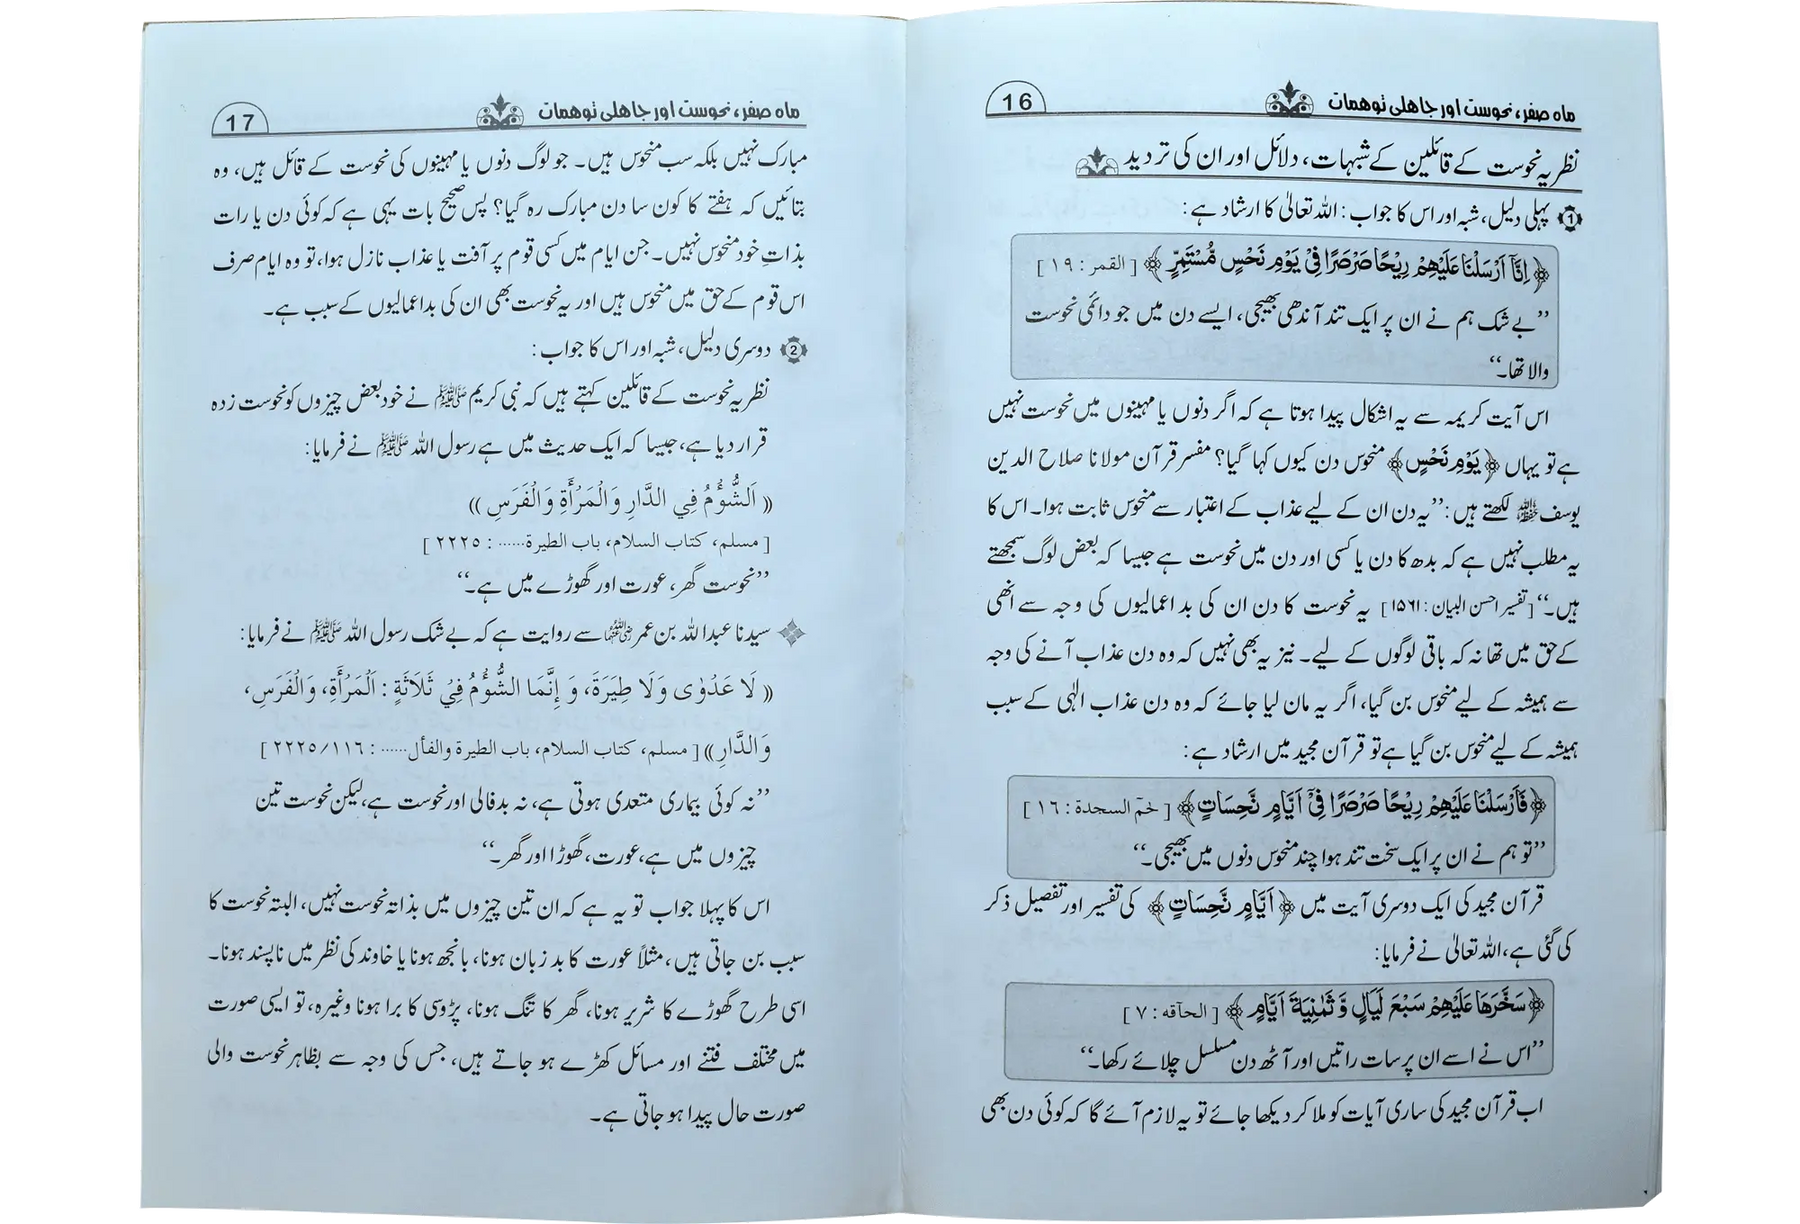 ماہ صفر، نحوست اور جاھلی توھمات
16
نظریہ نحوست کے قائلین کے شبہات، دلائل اور ان کی تردید
1 پہلی دلیل، شبہ اور اس کا جواب: اللہ تعالیٰ کا ارشاد ہے:
﴿اِنَّاۤ اَرْسَلْنَا عَلَيْهِمْ رِيْحًا صَرْصَرًا فِيْ يَوْمِ نَحْسٍ مُّسْتَمِرٍّ﴾ [القمر: ۱۹]
’’بے شک ہم نے ان پر ایک تند آندھی بھیجی، ایسے دن میں جو دائمی نحوست
والا تھا۔‘‘
اس آیت کریمہ سے یہ اشکال پیدا ہوتا ہے کہ اگر دنوں یا مہینوں میں نحوست نہیں
ہے تو یہاں ﴿يَوْمِ نَحْسٍ﴾ منحوس دن کیوں کہا گیا؟ مفسر قرآن مولانا صلاح الدین
یوسف ﷾ لکھتے ہیں: ’’یہ دن ان کے لیے عذاب کے اعتبار سے منحوس ثابت ہوا۔ اس کا
یہ مطلب نہیں ہے کہ بدھ کا دن یا کسی اور دن میں نحوست ہے جیسا کہ بعض لوگ سمجھتے
ہیں۔‘‘ [تفسیر احسن البیان: ۱۵۶۱] یہ نحوست کا دن ان کی بداعمالیوں کی وجہ سے انھی
کے حق میں تھا نہ کہ باقی لوگوں کے لیے۔ نیز یہ بھی نہیں کہ وہ دن عذاب آنے کی وجہ
سے ہمیشہ کے لیے منحوس بن گیا، اگر یہ مان لیا جائے کہ وہ دن عذاب الٰہی کے سبب
ہمیشہ کے لیے منحوس بن گیا ہے تو قرآن مجید میں ارشاد ہے:
﴿فَاَرْسَلْنَا عَلَيْهِمْ رِيْحًا صَرْصَرًا فِيْۤ اَيَّامٍ نَّحِسَاتٍ﴾ [حٰمٓ السجدة: ۱٦]
’’تو ہم نے ان پر ایک سخت تند ہوا چند منحوس دنوں میں بھیجی۔‘‘
قرآن مجید کی ایک دوسری آیت میں ﴿اَيَّامٍ نَّحِسَاتٍ﴾ کی تفسیر اور تفصیل ذکر
کی گئی ہے، اللہ تعالیٰ نے فرمایا:
﴿سَخَّرَهَا عَلَيْهِمْ سَبْعَ لَيَالٍ وَّثَمٰنِيَةَ اَيَّامٍ﴾ [الحآقه: ٧]
’’اس نے اسے ان پر سات راتیں اور آٹھ دن مسلسل چلائے رکھا۔‘‘
اب قرآن مجید کی ساری آیات کو ملا کر دیکھا جائے تو یہ لازم آئے گا کہ کوئی دن بھی
ماہ صفر، نحوست اور جاھلی توھمات
17
مبارک نہیں بلکہ سب منحوس ہیں۔ جو لوگ دنوں یا مہینوں کی نحوست کے قائل ہیں، وہ
بتائیں کہ ہفتے کا کون سا دن مبارک رہ گیا؟ پس صحیح بات یہی ہے کہ کوئی دن یا رات
بذاتِ خود منحوس نہیں۔ جن ایام میں کسی قوم پر آفت یا عذاب نازل ہوا، تو وہ ایام صرف
اس قوم کے حق میں منحوس ہیں اور یہ نحوست بھی ان کی بداعمالیوں کے سبب ہے۔
2 دوسری دلیل، شبہ اور اس کا جواب:
نظریہ نحوست کے قائلین کہتے ہیں کہ نبی کریم ﷺ نے خود بعض چیزوں کو نحوست زدہ
قرار دیا ہے، جیسا کہ ایک حدیث میں ہے رسول اللہ ﷺ نے فرمایا:
(( اَلشُّؤْمُ فِي الدَّارِ وَالْمَرْأَةِ وَالْفَرَسِ ))
[مسلم، كتاب السلام، باب الطيرة...... : ٢٢٢٥]
’’نحوست گھر، عورت اور گھوڑے میں ہے۔‘‘
سیدنا عبداللہ بن عمر رضی اللہ عنہما سے روایت ہے کہ بے شک رسول اللہ ﷺ نے فرمایا:
(( لَا عَدْوٰى وَلَا طِيَرَةَ، وَ إِنَّمَا الشُّؤْمُ فِيْ ثَلَاثَةٍ : اَلْمَرْأَةِ، وَالْفَرَسِ،
وَالدَّارِ)) [مسلم، كتاب السلام، باب الطيرة والفأل...... : ١١٦/٢٢٢٥]
’’نہ کوئی بیماری متعدی ہوتی ہے، نہ بدفالی اور نحوست ہے، لیکن نحوست تین
چیزوں میں ہے، عورت، گھوڑا اور گھر۔‘‘
اس کا پہلا جواب تو یہ ہے کہ ان تین چیزوں میں بذاتہ نحوست نہیں، البتہ نحوست کا
سبب بن جاتی ہیں، مثلاً عورت کا بدزبان ہونا، بانجھ ہونا یا خاوند کی نظر میں ناپسند ہونا۔
اسی طرح گھوڑے کا شریر ہونا، گھر کا تنگ ہونا، پڑوسی کا برا ہونا وغیرہ، تو ایسی صورت
میں مختلف فتنے اور مسائل کھڑے ہو جاتے ہیں، جس کی وجہ سے بظاہر نحوست والی
صورت حال پیدا ہو جاتی ہے۔